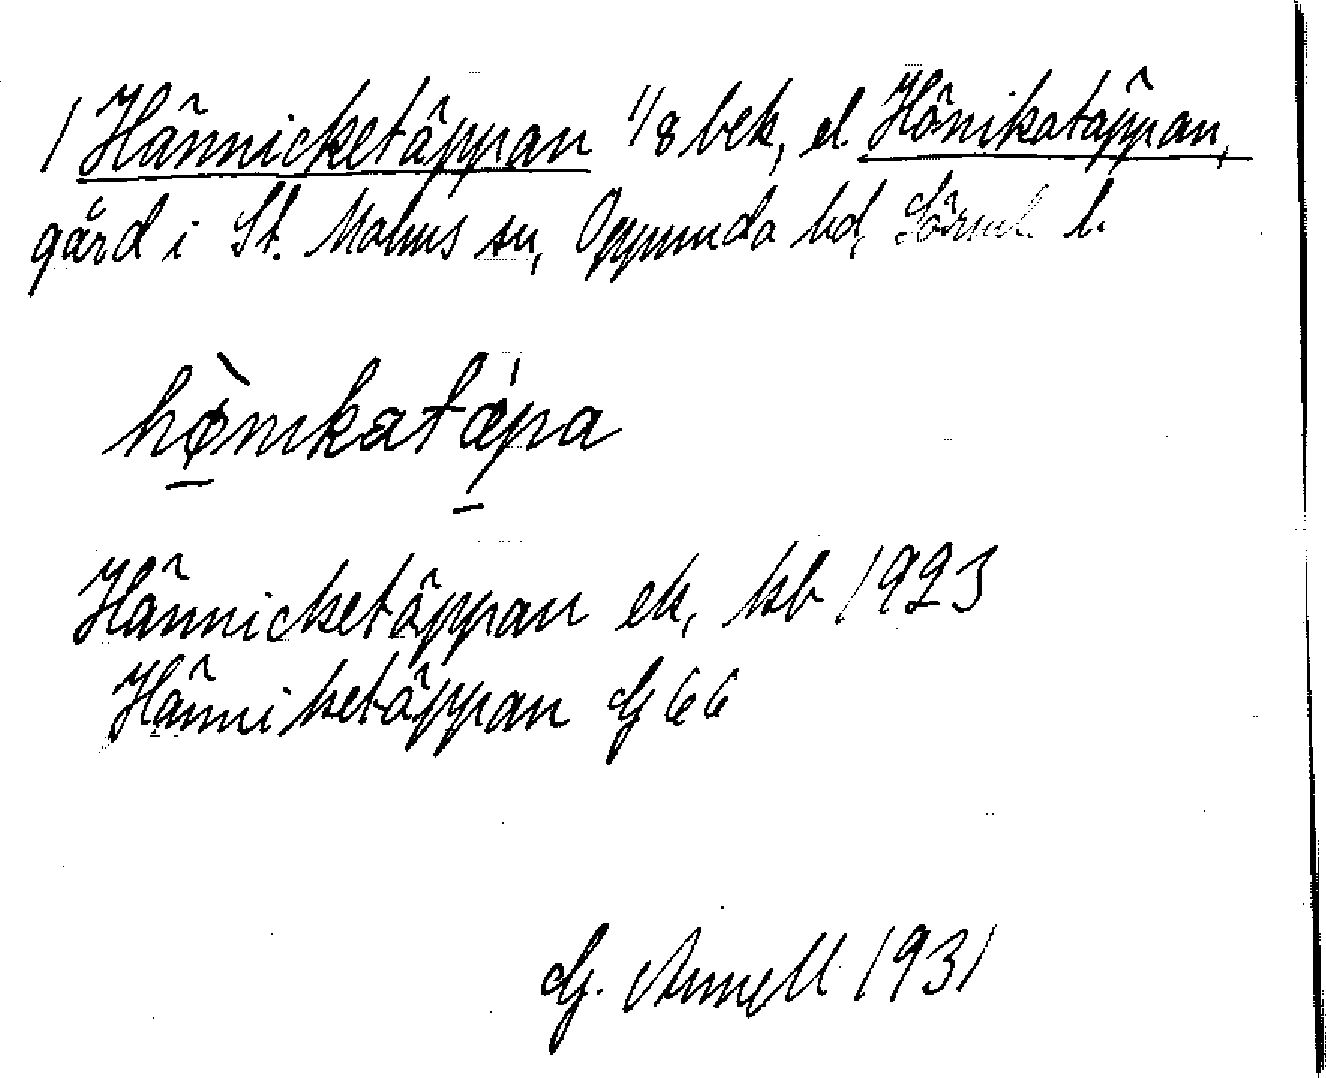 1 Hännicketäppan 1/8 bek, el Hönikatäppan,
gård i St. Malms sn, Oppunda hd, Sörml l.
hø̀nikatæ̍pa
Hännicketäppan ek, kb 1923
Hänniketäppan G 66
G. Annell 1931